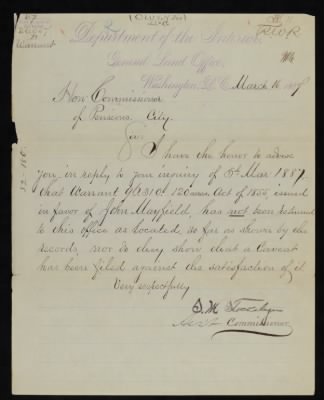 Department of the Interior,
General Land Office,
Washington, D.C. March 16, 1887
Hon. Commissioner
of Pensions, City.
Sir:
I have the honor to advise
you, in reply to your inquiry of 5th Mar 1887,
that Warrant 120 acres Act of 1855, issued
in favor of John Mayfield, has not been returned
to this office as located, so far as shown by the
records, nor do they show that a Caveat
has been filed against the satisfaction of it.
Very respectfully
S. M. Stockslager
Commissioner